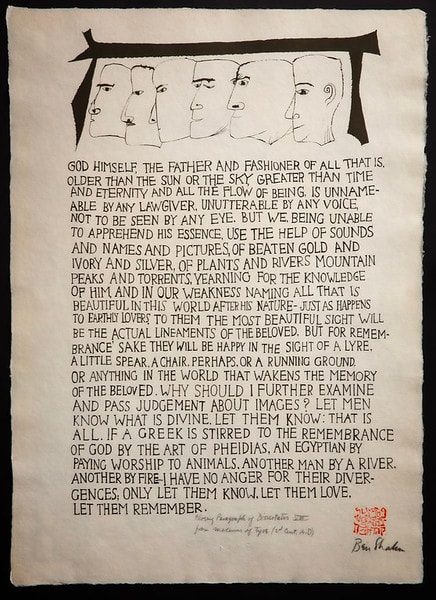 GOD HIMSELF, THE FATHER AND FASHIONER OF ALL THAT IS,
OLDER THAN THE SUN OR THE SKY, GREATER THAN TIME
AND ETERNITY AND ALL THE FLOW OF BEING, IS UNNAME-
ABLE BY ANY LAWGIVER, UNUTTERABLE BY ANY VOICE,
NOT TO BE SEEN BY ANY EYE. BUT WE, BEING UNABLE
TO APPREHEND HIS ESSENCE, USE THE HELP OF SOUNDS
AND NAMES AND PICTURES, OF BEATEN GOLD AND
IVORY AND SILVER, OF PLANTS AND RIVERS MOUNTAIN
PEAKS AND TORRENTS, YEARNING FOR THE KNOWLEDGE
OF HIM AND IN OUR WEAKNESS NAMING ALL THAT IS
BEAUTIFUL IN THIS WORLD AFTER HIS NATURE-JUST AS HAPPENS
TO EARTHLY LOVERS TO THEM THE MOST BEAUTIFUL SIGHT WILL
BE THE ACTUAL LINEAMENTS OF THE BELOVED. BUT FOR REMEM-
BRANCE' SAKE THEY WILL BE HAPPY IN THE SIGHT OF A LYRE,
A LITTLE SPEAR, A CHAIR, PERHAPS, OR A RUNNING GROUND,
OR ANYTHING IN THE WORLD THAT WAKENS THE MEMORY
OF THE BELOVED. WHY SHOULD I FURTHER EXAMINE
AND PASS JUDGEMENT ABOUT IMAGES? LET MEN
KNOW WHAT IS DIVINE, LET THEM KNOW: THAT IS
ALL. IF A GREEK IS STIRRED TO THE REMEMBRANCE
OF GOD BY THE ART OF PHEIDIAS, AN EGYPTIAN BY
PAYING WORSHIP TO ANIMALS, ANOTHER MAN BY A RIVER,
ANOTHER BY FIRE-I HAVE NO ANGER FOR THEIR DIVER-
GENCES; ONLY LET THEM KNOW, LET THEM LOVE,
LET THEM REMEMBER.
Paragraph of VIII
from of Tyre (2d Cent. A.D.)
Ben Shahn